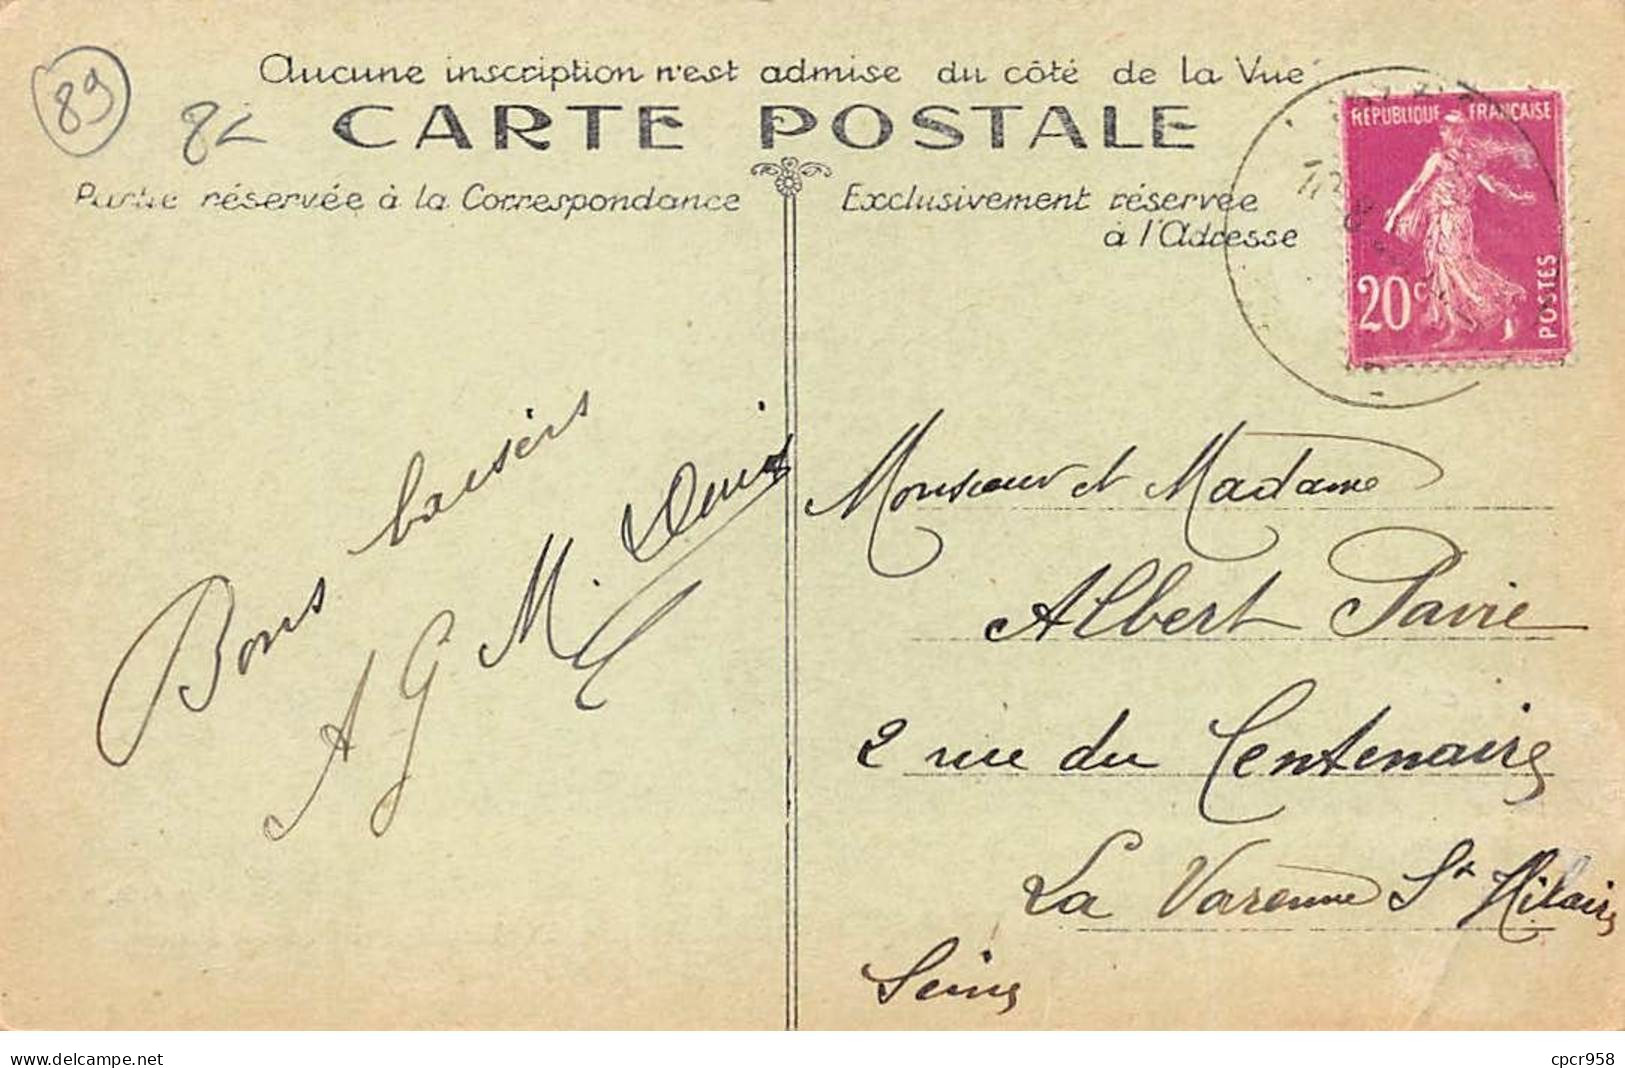 89
82
Aucune inscription n'est admise du côté de la Vue
CARTE POSTALE
Partie réservée à la Correspondance
Exclusivement réservée
à l'Adresse
RÉPUBLIQUE FRANÇAISE
20c
POSTES
Bons baisers
A G M. Denis
Monsieur et Madame
Albert Pavie
2 rue du Centenaire
La Varenne St Hilaire
Seine
www.delcampe.net
cpcr958